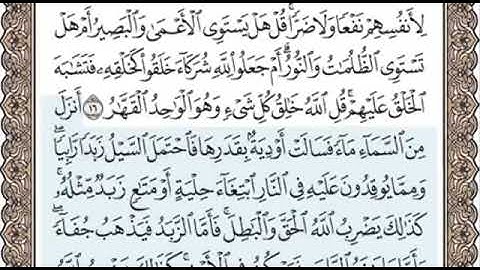 لِأَنفُسِهِمْ نَفْعًا وَلَا ضَرًّا ۚ قُلْ هَلْ يَسْتَوِي الْأَعْمَىٰ وَالْبَصِيرُ أَمْ هَلْ
تَسْتَوِي الظُّلُمَاتُ وَالنُّورُ ۗ أَمْ جَعَلُوا لِلَّهِ شُرَكَاءَ خَلَقُوا كَخَلْقِهِ فَتَشَابَهَ
الْخَلْقُ عَلَيْهِمْ ۚ قُلِ اللَّهُ خَالِقُ كُلِّ شَيْءٍ وَهُوَ الْوَاحِدُ الْقَهَّارُ ١٦ أَنزَلَ
مِنَ السَّمَاءِ مَاءً فَسَالَتْ أَوْدِيَةٌ بِقَدَرِهَا فَاحْتَمَلَ السَّيْلُ زَبَدًا رَّابِيًا ۚ
وَمِمَّا يُوقِدُونَ عَلَيْهِ فِي النَّارِ ابْتِغَاءَ حِلْيَةٍ أَوْ مَتَاعٍ زَبَدٌ مِّثْلُهُ ۚ
كَذَٰلِكَ يَضْرِبُ اللَّهُ الْحَقَّ وَالْبَاطِلَ ۚ فَأَمَّا الزَّبَدُ فَيَذْهَبُ جُفَاءً ۖ